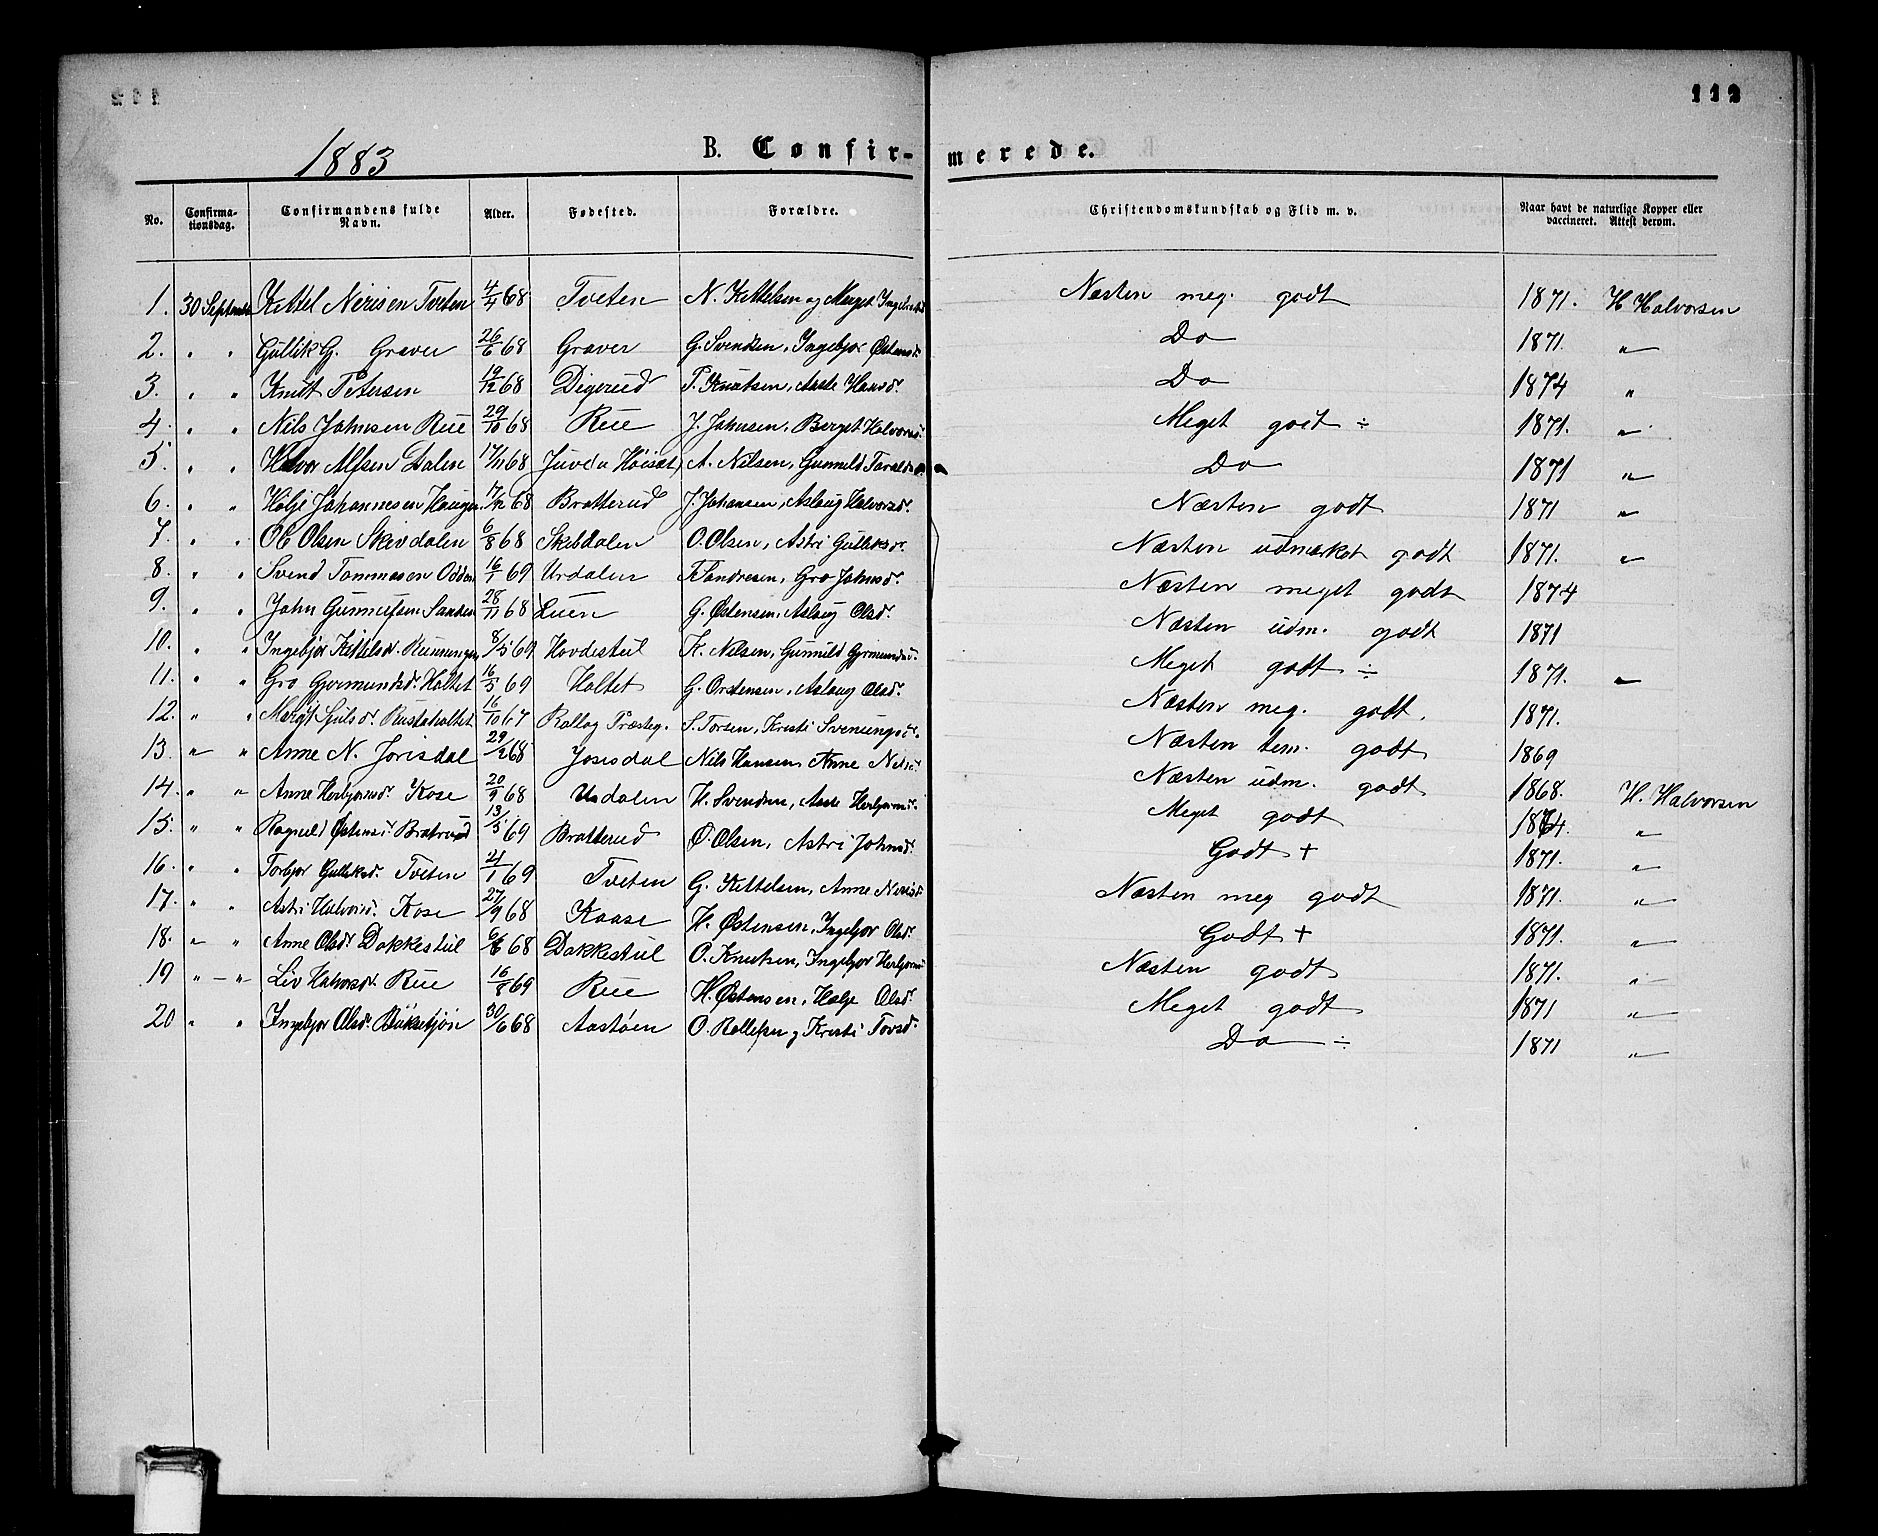 112
1883
B. Confir-merede.
No. Confirma-tionsdag. Confirmandens fulde Navn. Alder. Fødested. Forældre. Christendomskundskab og Flid m. v. Naar havt de naturlige Kopper eller vaccineret. Attest derom.
1. 30 September Kettel Nerisen Tveten 4/4 68 Tveten N. Kettelsen og Merget Næsten meg. godt 1871. H Halvorsen
2. " " Gullik G. Graver 26/6 68 Graver G. Svendsen, Ingebjor Østensd. Do 1871. "
3. " " Knut Petersen 19/12 68 Digerud P. Knutsen, Aaste Hansd. Do 1874 "
4. " " Nils Johnsen Rue 29/10 68 Rue J. Johnsen, Berget Halvorsd. Meget godt ÷ 1871. "
5. " " Halvor Alfsen Dalen 17/11 68 Juve A. Nilsen, Gunnild Do 1871 "
6. " " Holje Johannesen Haugen 17/12 68 Bratterud J. Johansen, Aslaug Halvorsd. Næsten godt 1871 "
7. " " Ole Olsen Skevdalen 6/8 68 Skebdalen O. Olsen, Astri Gulliksd. Næsten udmærket godt 1871. "
8. " " Svend Tommasen Odden 16/1 69 Urdalen T. Sandresen, Gro Johnsd. Næsten meget godt 1874
9. " " John Gunnulfsen Sanden 28/11 68 Luen G. Østensen, Aslaug Olsd. Næsten udm. godt 1871
10. " " Ingebjør Kettelsd. 8/5 69 Hovdestul K. Nilsen, Gunnild Gjermundsd. Meget godt ÷ 1871. "
11. " " Gro Gjermundsd. Holtet 16/5 69 Holtet G. Orstensen, Aslaug Olsd. Næsten meg. godt. 1871.
12. " " Mergit Sjulsd. Rustaholtet 16/10 67 Rollag Præsteg. S. Torsen, Kristi Svenungsd. Næsten tem. godt 1869
13. " " Anne N. Jorisdal 29/2 68 Josisdal Nils Hansen, Anne Nilsd. Næsten udm. godt 1868. H. Halvorsen
14. " " Anne Herbjørnsd. Kose 20/9 68 Urdalen H. Svendsen, Aaste Herbjørnsd. Meget godt 1874. "
15. " " Ragnild Østensd. Bratrud 13/5 69 Bratterud Ø. Olsen, Astri Johnsd. Godt + 1871. "
16. " " Torbjor Gulliksd. Tveten 21/1 69 Tveten G. Kettelsen, Anne Nerisd. Næsten meg godt 1871. "
17. " " Astri Halvorsd. Kose 27/9 68 Kaase H. Østensen, Ingebjor Olsd. Godt + 1871. "
18. " " Anne Olsd. Dokkestul 6/6 68 Dakkestul O. Knutsen, Ingebjor Herbjørnsd. Næsten godt 1871. "
19 " — " Liv Halvorsd. Rue 16/8 69 Rue H. Østensen, Holje Olsd. Meget godt 1871 "
20 " " Ingebjor Olsd. Buksetjøn 30/6 68 Aastøen O. Rollefsen og Kristi Tovsd. Do ÷ 1871 "